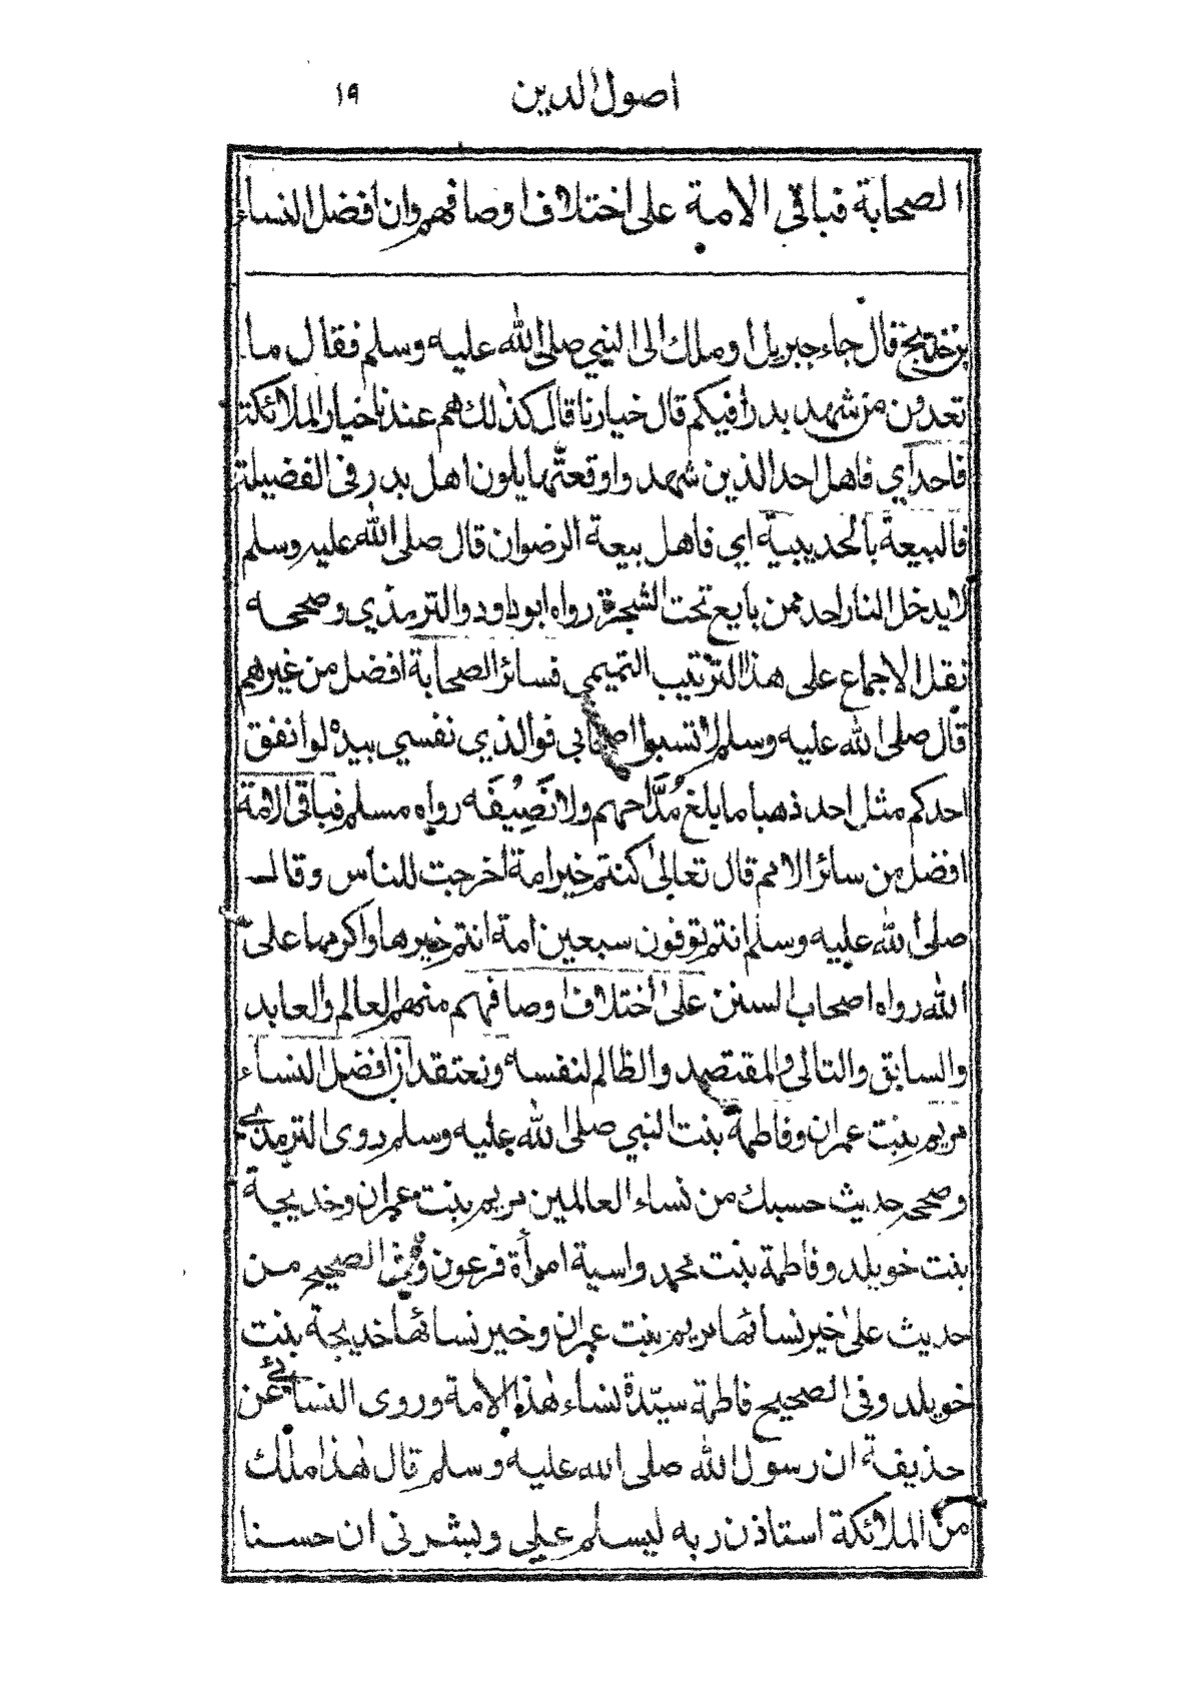 اصول الدين ١٩
الصحابة فباقي الامة على اختلاف اوصافهم وان افضل النساء
بن خديج قال جاء جبريل او ملك الى النبي صلى الله عليه وسلم فقال ما
تعدون من شهد بدرا فيكم قال خيارنا قال كذلك هم عندنا خيار الملائكة
فاحد اي فاهل احد الذين شهدوا وقعتها يلون اهل بدر في الفضيلة
فالبيعة بالحديبية اي فاهل بيعة الرضوان قال صلى الله عليه وسلم
لا يدخل النار احد ممن بايع تحت الشجرة رواه ابو داود والترمذي وصححه
نقل الاجماع على هذا الترتيب التميمي فسائر الصحابة افضل من غيرهم
قال صلى الله عليه وسلم لا تسبوا اصحابي فوالذي نفسي بيده لو انفق
احدكم مثل احد ذهبا ما يلغ مُدَّ احهم ولا نَصِيفَه رواه مسلم فباقي الامة
افضل من سائر الامم قال تعالى كنتم خير امة اخرجت للناس وقال
صلى الله عليه وسلم انتم توفون سبعين امة انتم خيرها واكرمها على
الله رواه اصحاب السنن على اختلاف اوصافهم منهم العالم والعابد
والسابق والتالي والمقتصد والظالم لنفسه ونعتقد ان افضل النساء
مريم بنت عمران وفاطمة بنت النبي صلى الله عليه وسلم روى الترمذي
وصححه حديث حسبك من نساء العالمين مريم بنت عمران وخديجة
بنت خويلد وفاطمة بنت محمد واسية امرأة فرعون وفي الصحيح من
حديث على خير نسائها مريم بنت عمران وخير نسائها خديجة بنت
خويلد وفي الصحيح فاطمة سيّدة نساء هذه الامة وروى النسائي عن
حذيفة ان رسول الله صلى الله عليه وسلم قال هذا ملك
من الملائكة استاذن ربه ليسلم علي وبشرني ان حسنا